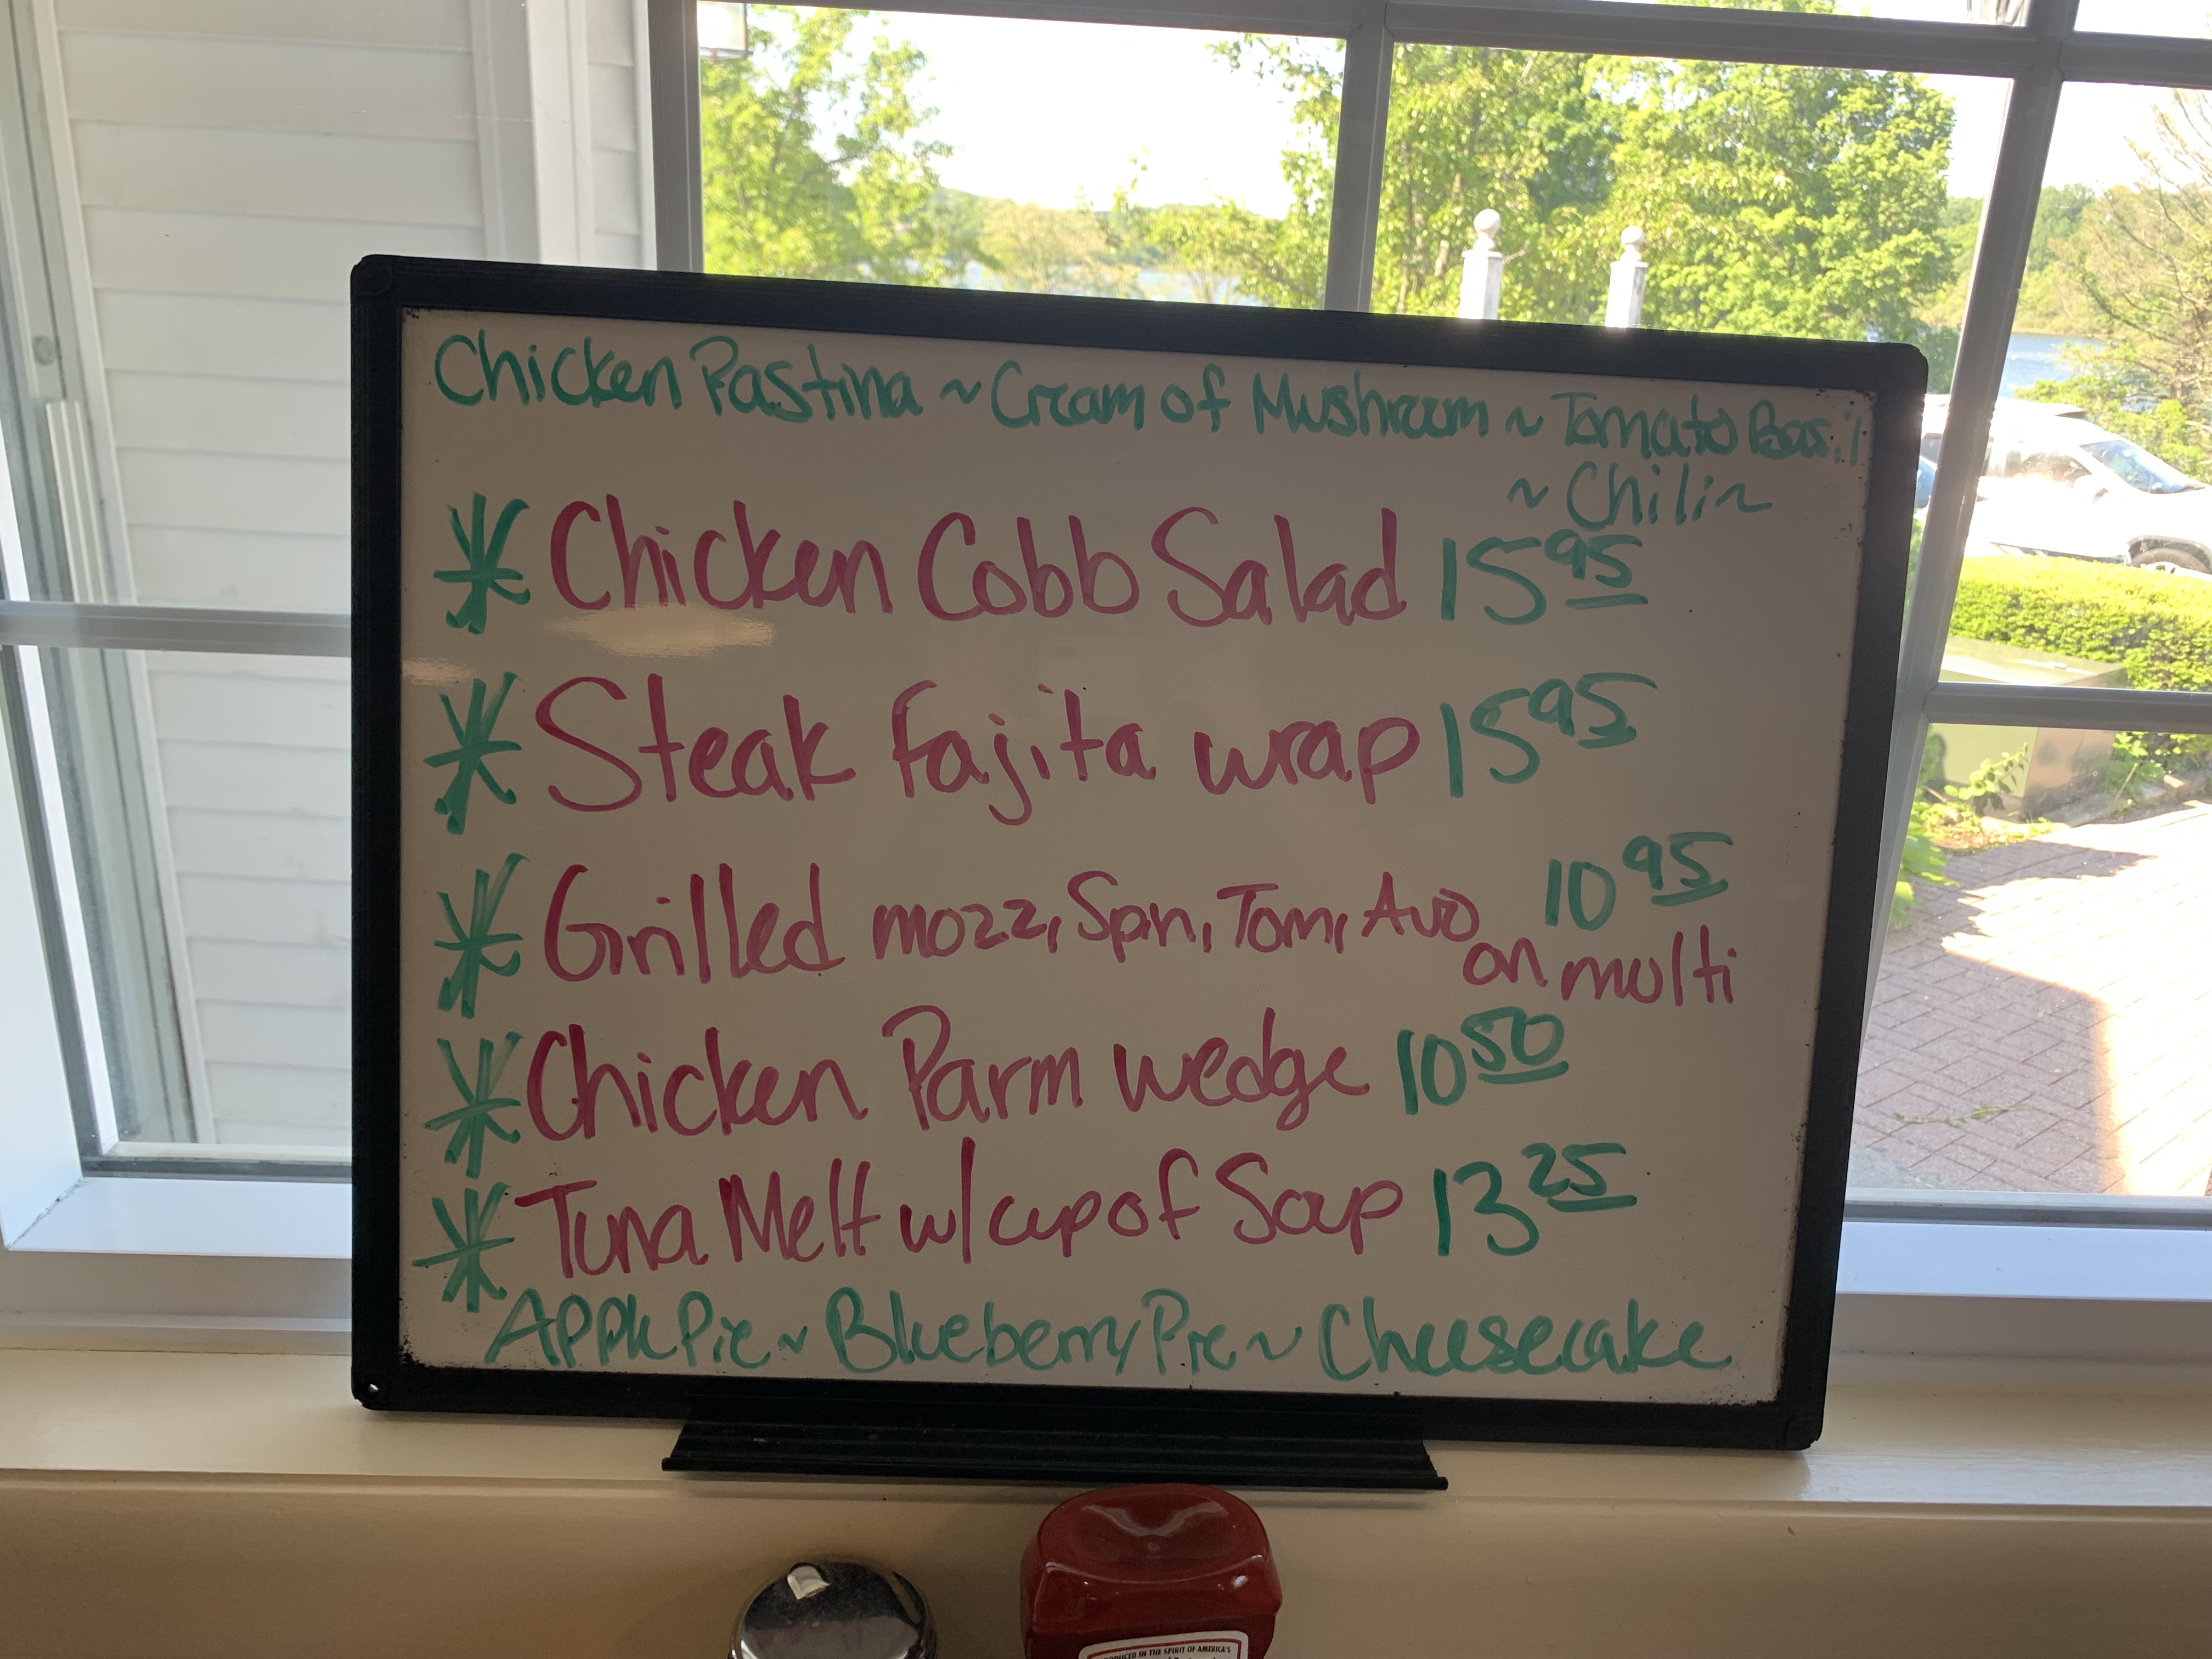 Chicken Pastina ~ Cream of Mushroom ~ Tomato Basil
~ Chili ~
* Chicken Cobb Salad 15 95
* Steak Fajita wrap 15 95
* Grilled mozz, Spin, Tom, Avo 10 95
on multi
* Chicken Parm wedge 10 50
* Tuna Melt w/ cup of Soup 13 25
Apple Pie ~ Blueberry Pie ~ Cheesecake
PRODUCED IN THE SPIRIT OF AMERICA'S